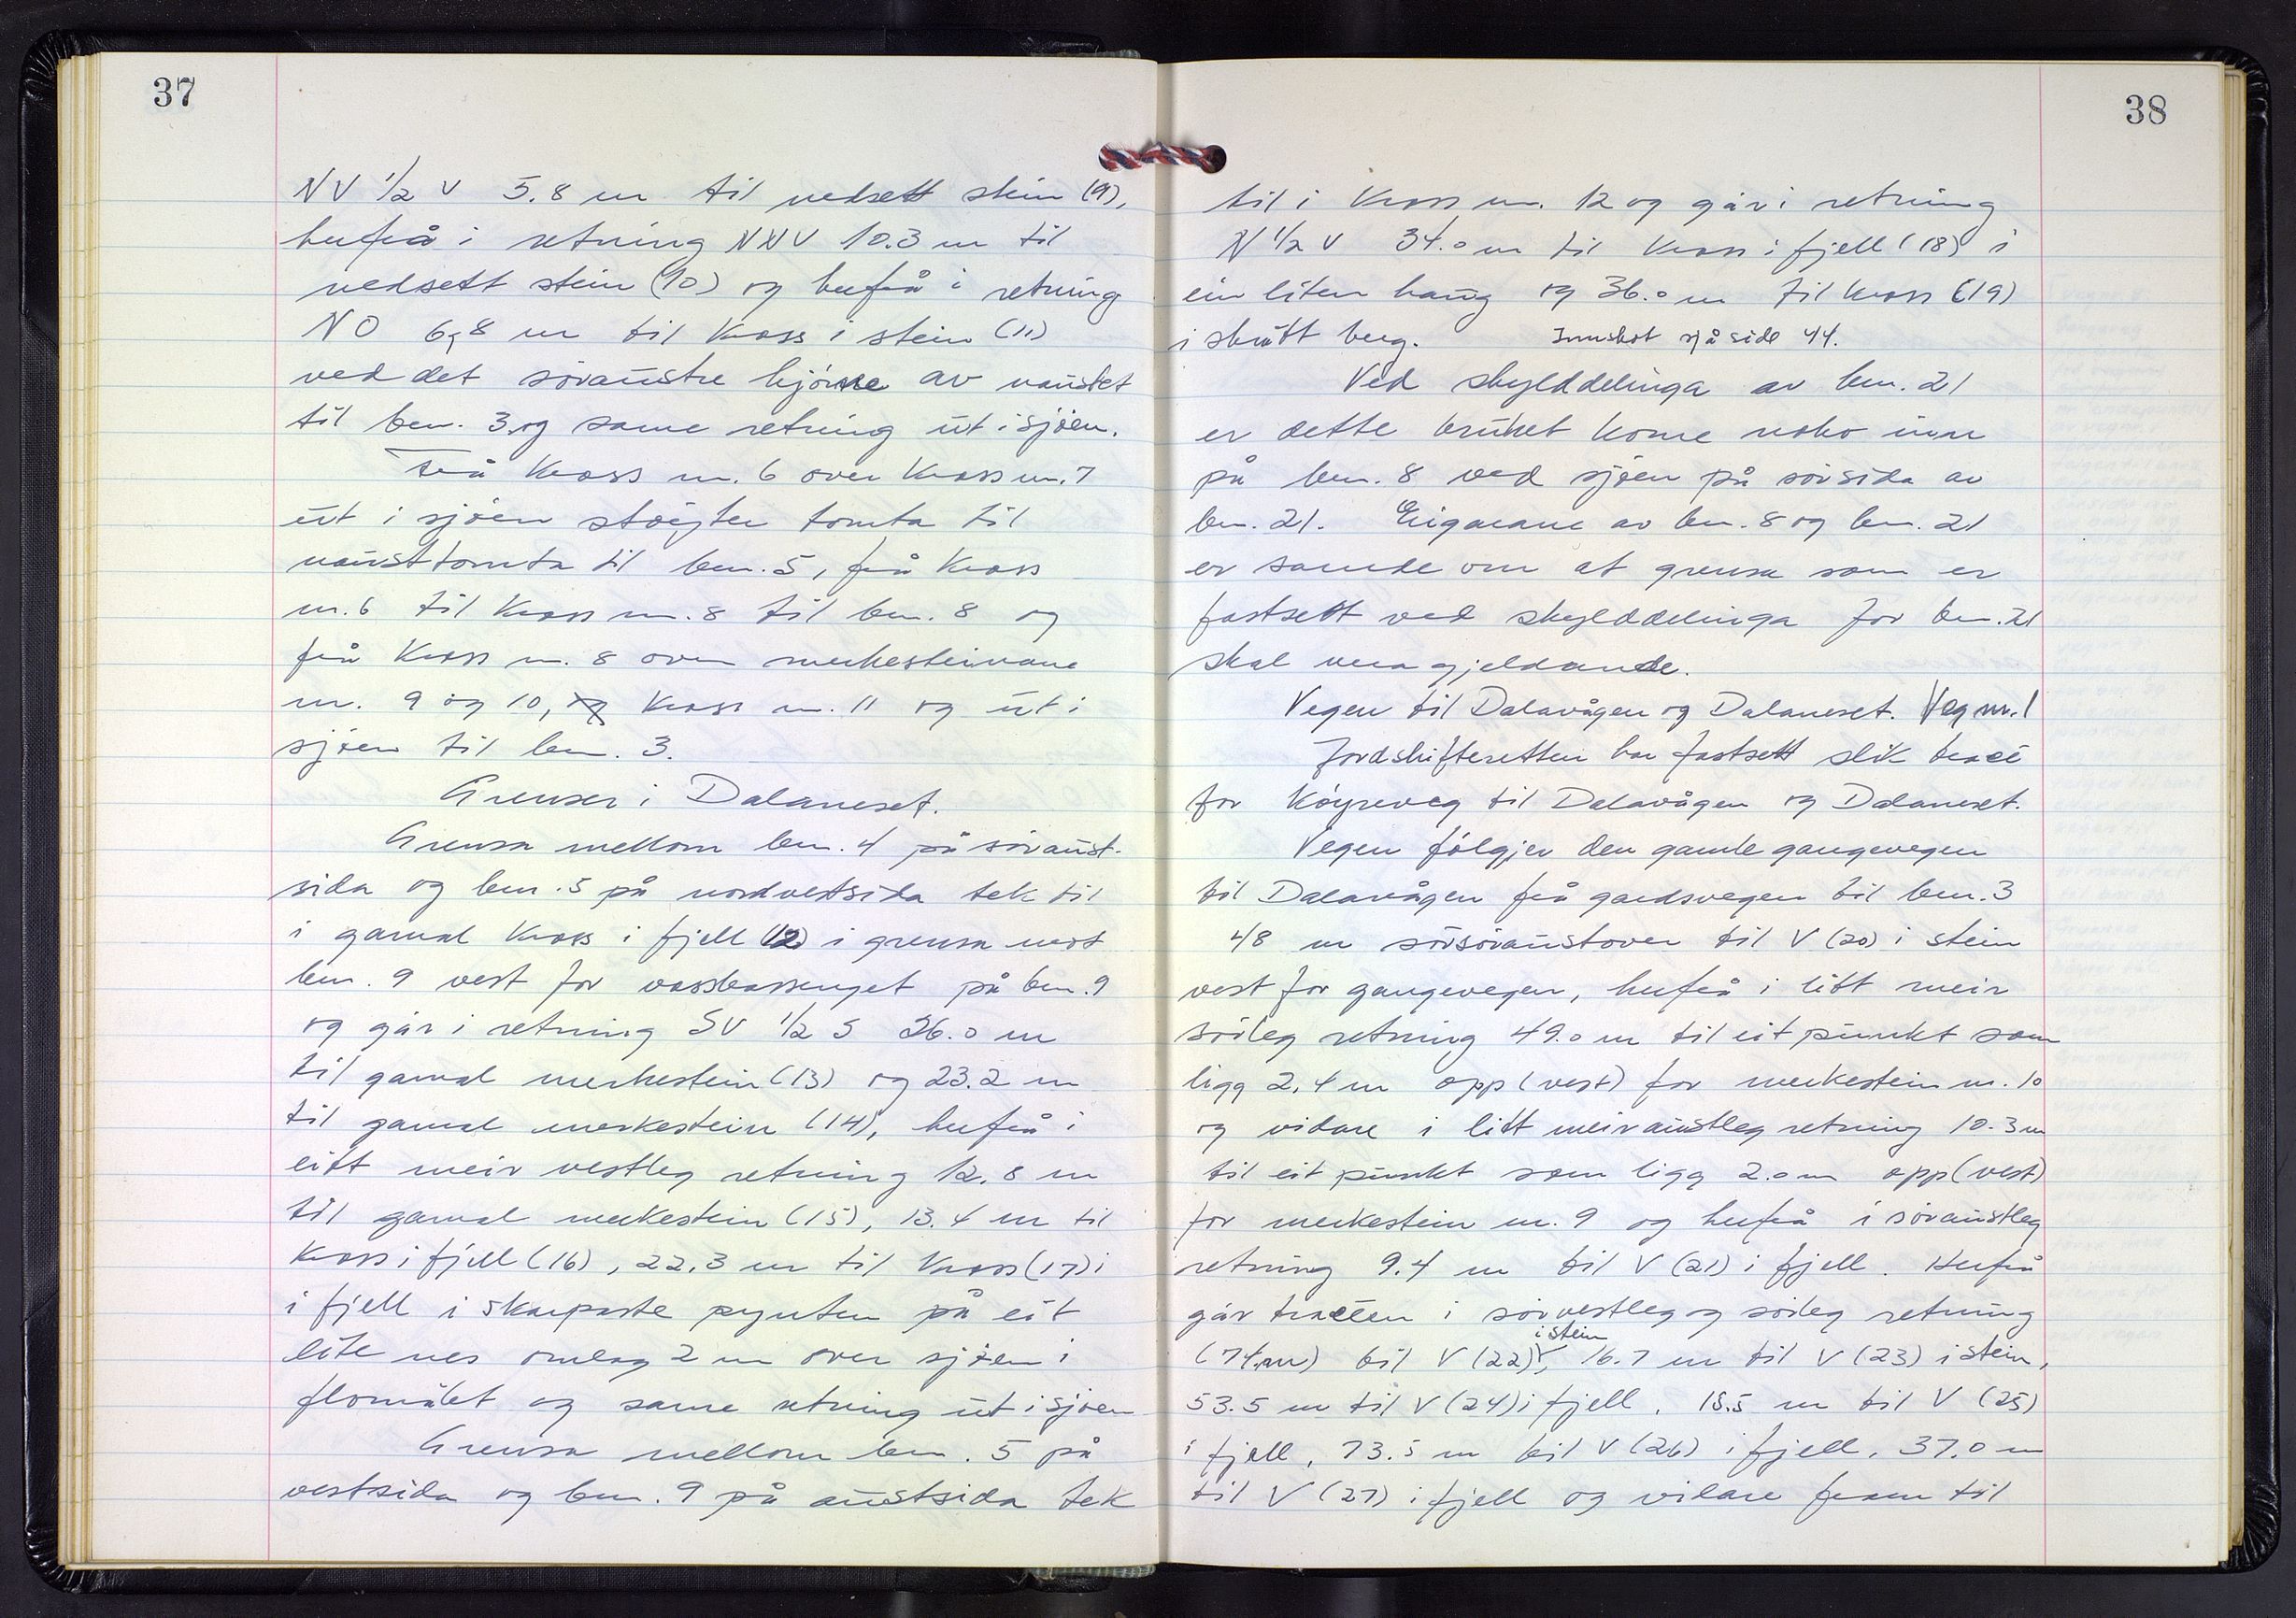 37
NV 1/2 V 5.8 m til nedsett stein (9),
herfrå i retning NNV 10.3 m til
nedsett stein (10) og herfrå i retning
NO 6,8 m til kross i stein (11)
ved det søraustre hjørne av naustet
til bnr. 3 og same retning ut i sjøen.
Frå kross nr. 6 over kross nr. 7
ut i sjøen støyter tomta til
nausttomta til bnr. 5, frå kross
nr. 6 til kross nr. 8 til bnr. 8 og
frå kross nr. 8 over merkesteinane
nr. 9 og 10, og kross nr. 11 og ut i
sjøen til bnr. 3.
Grenser i Dalaneset.
Grensa mellom bnr. 4 på søraust-
sida og bnr. 5 på nordvestsida tek til
i gamal kross i fjell (12) i grensa mot
bnr. 9 vest for vassbassenget på bnr. 9
og går i retning SV 1/2 S 26.0 m
til gamal merkestein (13) og 23.2 m
til gamal merkestein (14), herfrå i
litt meir vestleg retning 12.8 m
til gamal merkestein (15), 13.4 m til
kross i fjell (16), 22.3 m til kross (17) i
i fjell i skarpaste pynten på eit
lite nes omlag 2 m over sjøen i
flomålet og same retning ut i sjøen
Grensa mellom bnr. 5 på
vestsida og bnr. 9 på austsida tek
38
til i kross nr. 12 og går i retning
N 1/2 V 34.0 m til kross i fjell (18) i
ein liten haug og 36.0 m til kross (19)
i skrått berg. Innskot sjå side 44.
Ved skylddelinga av bnr. 21
er dette bruket kome noko inn
på bnr. 8 ved sjøen på sørsida av
bnr. 21. Eigarane av bnr. 8 og bnr. 21
er samde om at grensa som er
fastsett ved skylddelinga for bnr. 21
skal vera gjeldande.
Vegen til Dalavågen og Dalaneset. Veg nr. 1
Jordskifteretten har fastsett slik tracé
for køyreveg til Dalavågen og Dalaneset.
Vegen følgjer den gamle gangevegen
til Dalavågen frå gardsvegen til bnr. 3
48 m sørsøraustover til V (20) i stein
vest for gangevegen, herfrå i litt meir
sørleg retning 49.0 m til eit punkt som
ligg 2,4 m opp (vest) for merkestein nr. 10
og vidare i litt meir austleg retning 10.3 m
til eit punkt som ligg 2.0 m opp (vest)
for merkestein nr. 9 og herfrå i søraustleg
retning 9.4 m til V (21) i fjell. Herfrå
går traceen i sørvestleg og sørleg retning
i stein
(74 m) til V (22), 16.7 m til V (23) i stein,
53.5 m til V (24) i fjell, 15.5 m til V (25)
i fjell, 73.5 m til V (26) i fjell, 37.0 m
til V (27) i fjell og vidare fram til